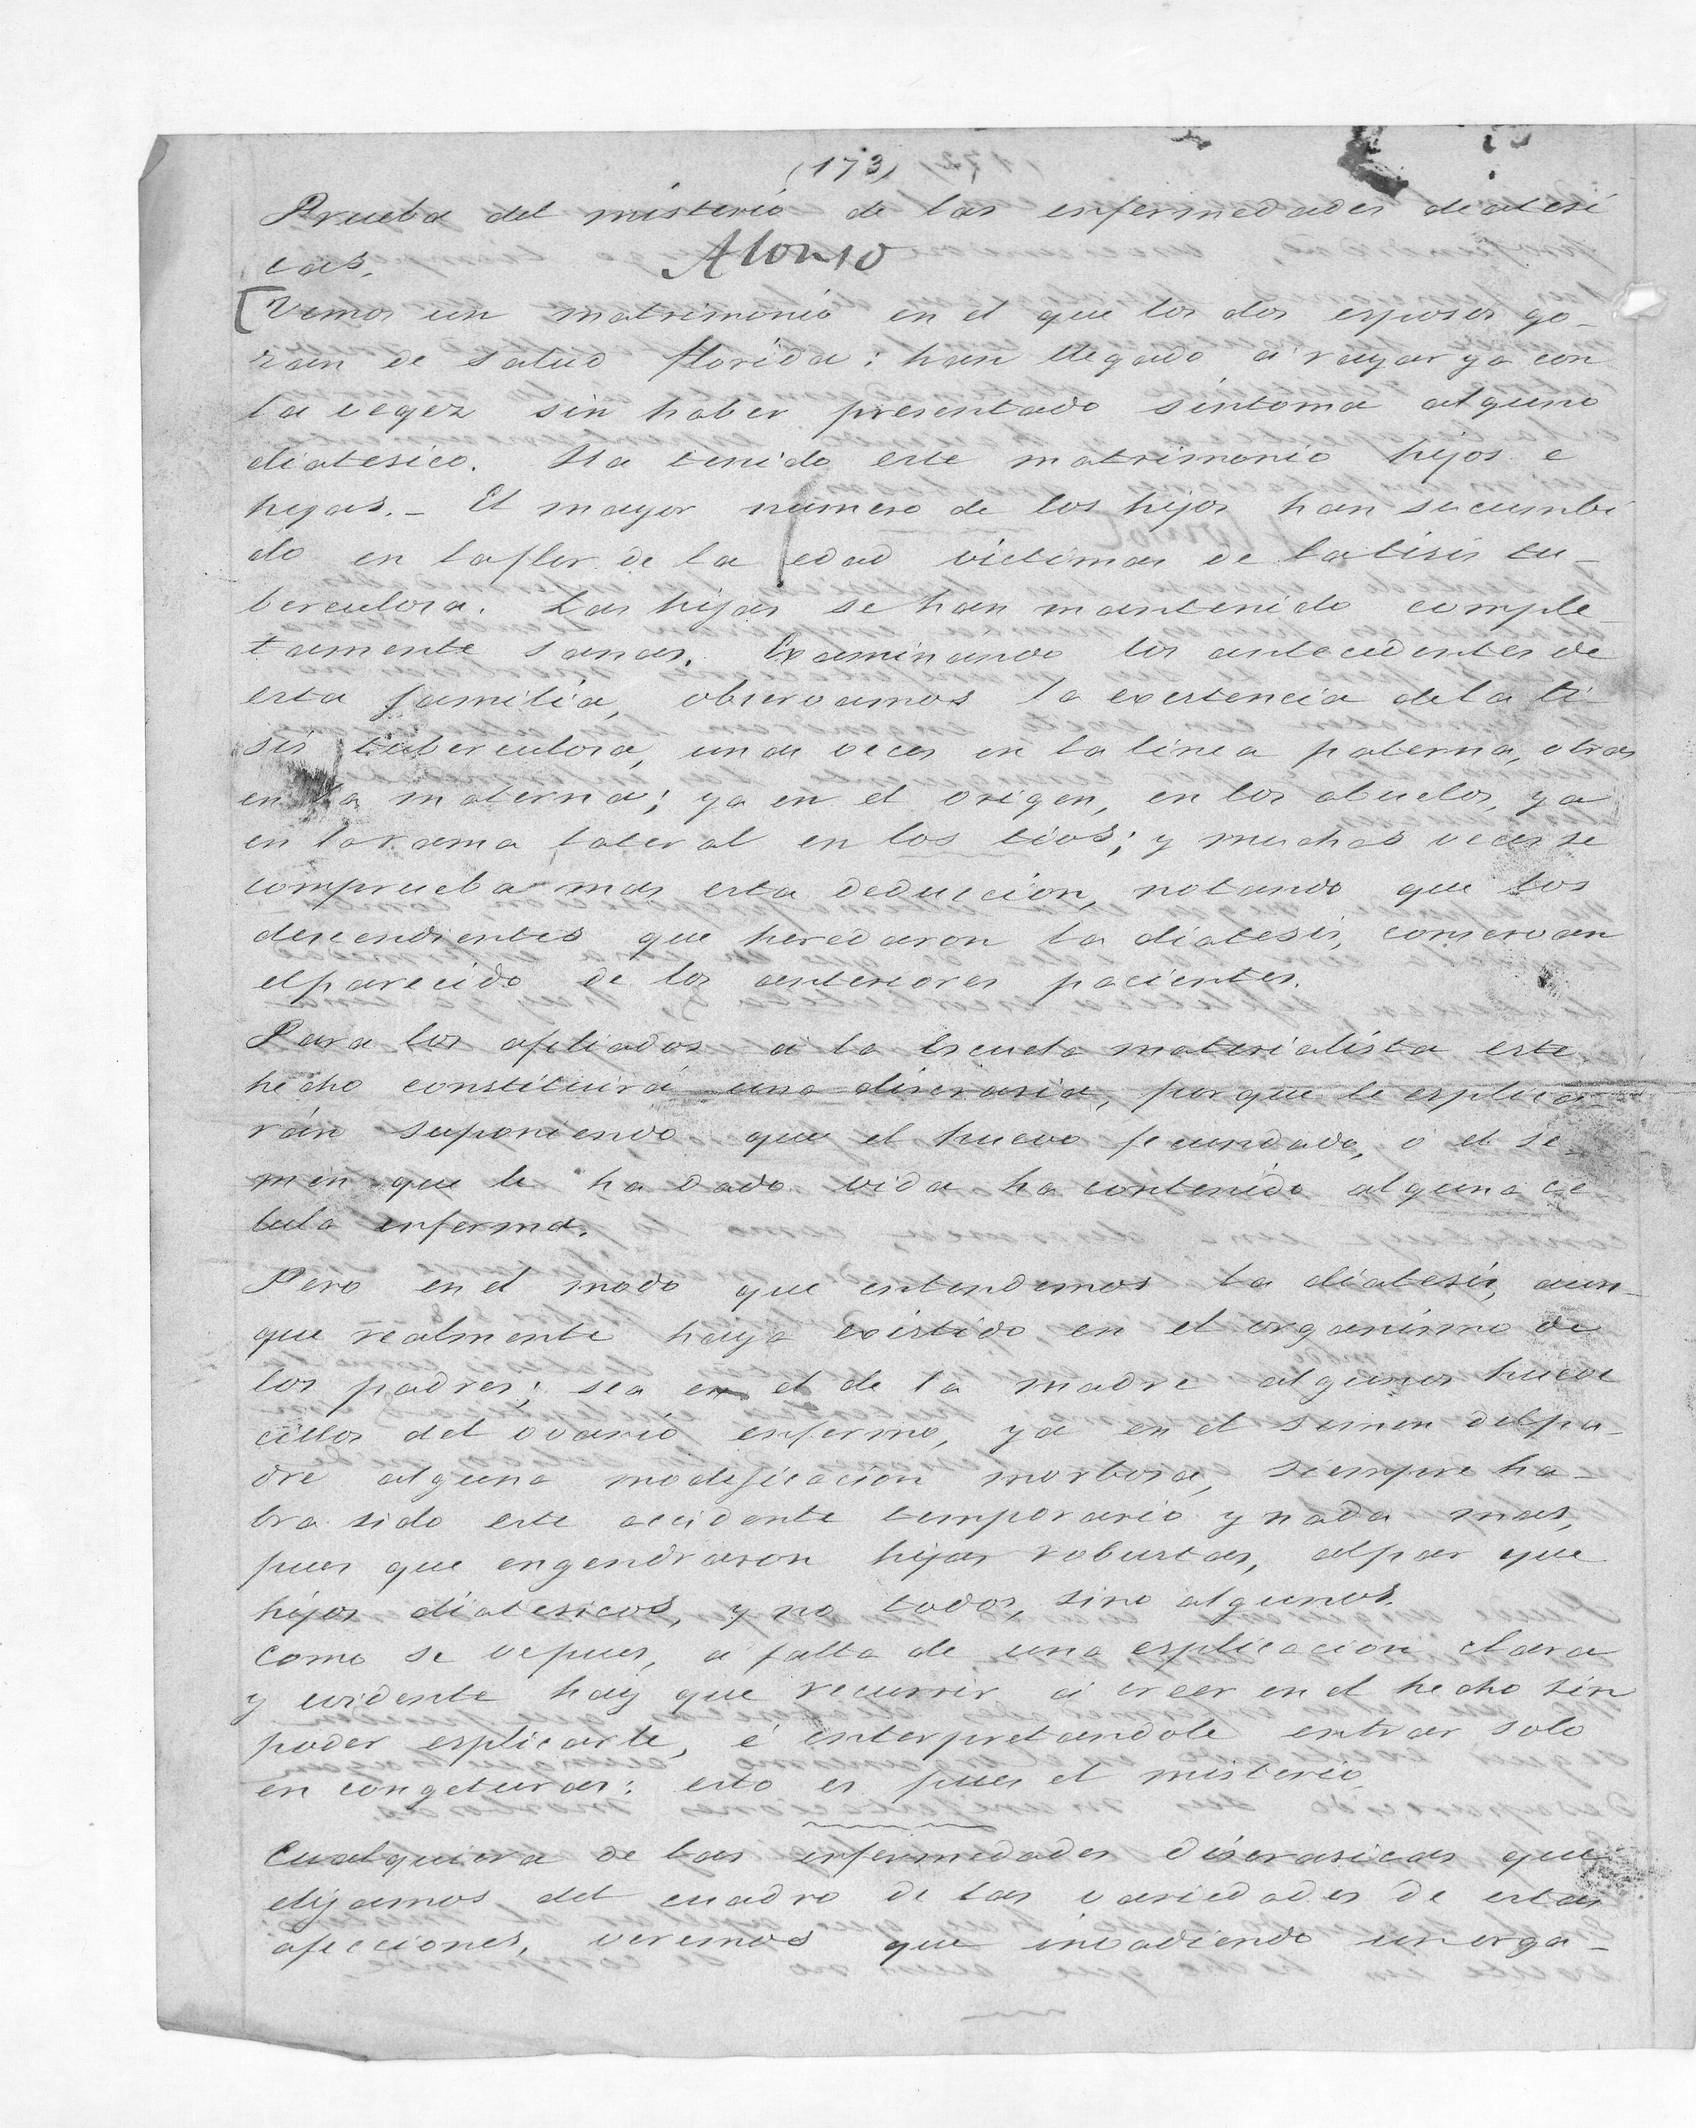 (173)
Prueba del misterio de las enfermedades diatesi
cas.
Alonso
[Vemos un matrimonio en el que los dos esposos go-
zan de salud florida: han llegado a rayar ya con
la vegez sin haber presentado sintoma alguno
diatesico. Ha tenido este matrimonio hijos e
hijas.- El mayor numero de los hijos han sucumbi
do en la flor de la edad victimas de la tisis tu-
berculosa. Las hijas se han mantenido comple
tamente sanas. Examinando los antecedentes de
esta familia, observamos la existencia de la ti-
sis tuberculosa, unas veces en la linea paterna, otras
en la materna; ya en el origen, en los abuelos, ya
en la rama lateral en los tios; y muchas veces se
comprueba mas esta deduccion, notando que los
descendientes que heredaron la diatesis, conservan
el parecido de los anteriores pacientes.
Para los afiliados a la Escuela materialista este
hecho constituirá una discrasia, porque le esplica-
rán suponiendo que el huevo fecundado, o el se-
men que le ha dado vida ha contenido alguna ce
lula enferma.
Pero en el modo que entendemos la diatesis, aun-
que realmente haya existido en el organismo de
los padres; sea en el de la madre algunos hueve
cillos del ovario enfermo, ya en el semen del pa-
dre alguna modificacion morbosa, siempre ha-
bra sido este accidente temporario y nada mas,
pues que engendraron hijas robustas, al par que
hijos diatesicos, y no todos, sino algunos.
Como se ve pues, a falta de una esplicacion clara
y evidente hay que recurrir a creer en el hecho sin
poder esplicarle, é interpretandole entrar solo
en congeturas: esto es pues el misterio.
Cualquiera de las enfermedades discrasicas que
elijamos del cuadro de las variedades de estas
afecciones, veremos que invadiendo un orga-